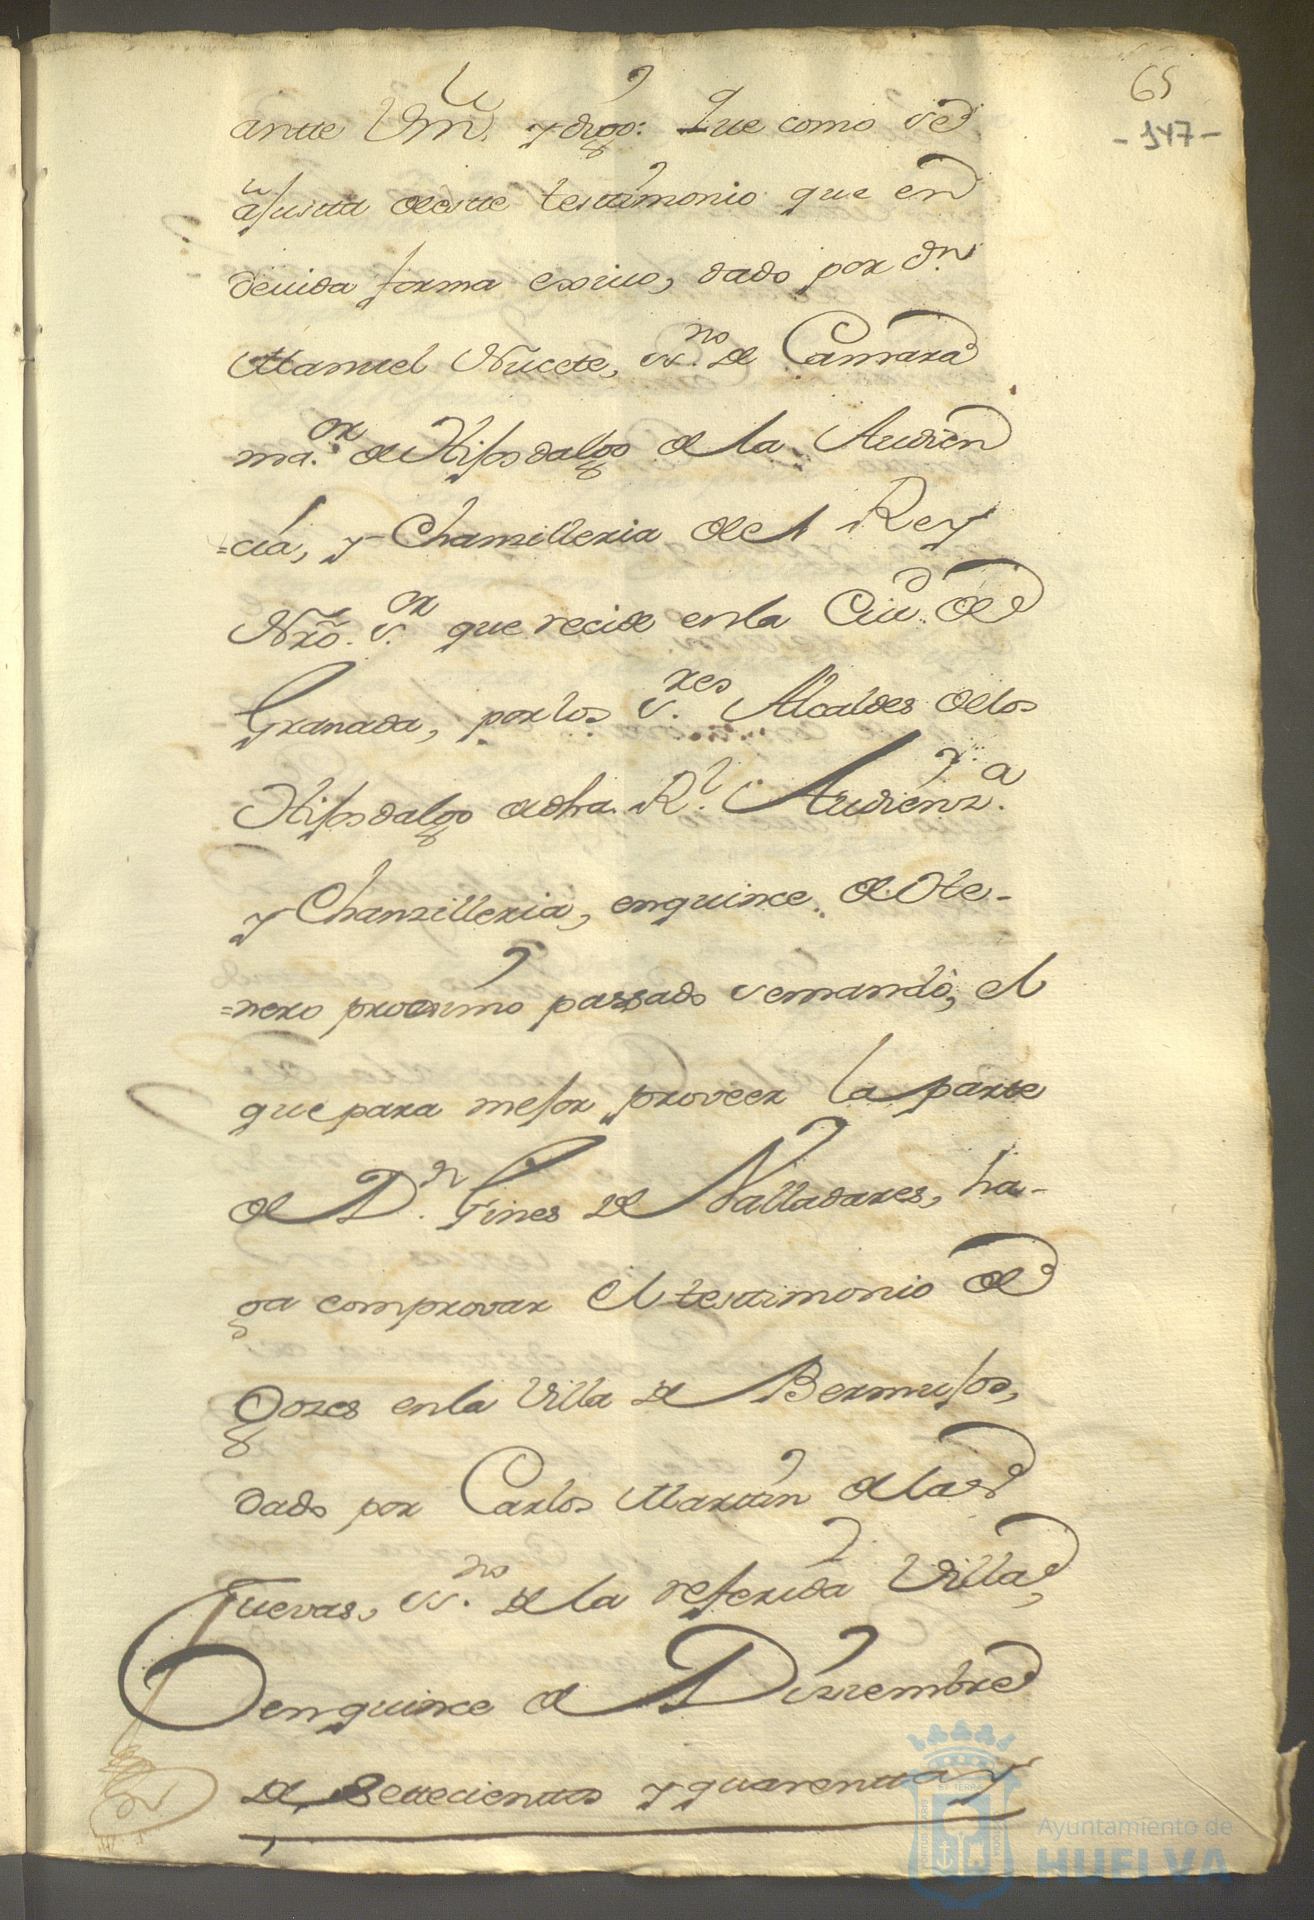 65
- 147 -
antte Vm. y digo: Que como se
ajusta deeste testtimonio que en
devida forma exsivo, dado por Dn.
Manuel Nucete, ss.no de Camara
ma.or de Hijosdalgo de la Audien
=cia, y Chanzilleria de el Rey
Nro. s.or que recide en la Ciud. de
Granada, por los s.res Alcaldes de los
Hijosdalgo de dha. Rl. Audienz.a
y Chanzilleria, en quince de He-
=nero proximo passado se mandò, el
que para mejor proveer la parte
de Dn. Gines de Valladares, ha-
ga comprovar el testimonio de
Gozes en la Villa de Bermujos,
dado por Carlos Martin de las
Cuevas, ss.no de la referida Villa,
en quince de Diziembre
de Settecienttos y quarentta y
Ayuntamiento de
HUELVA